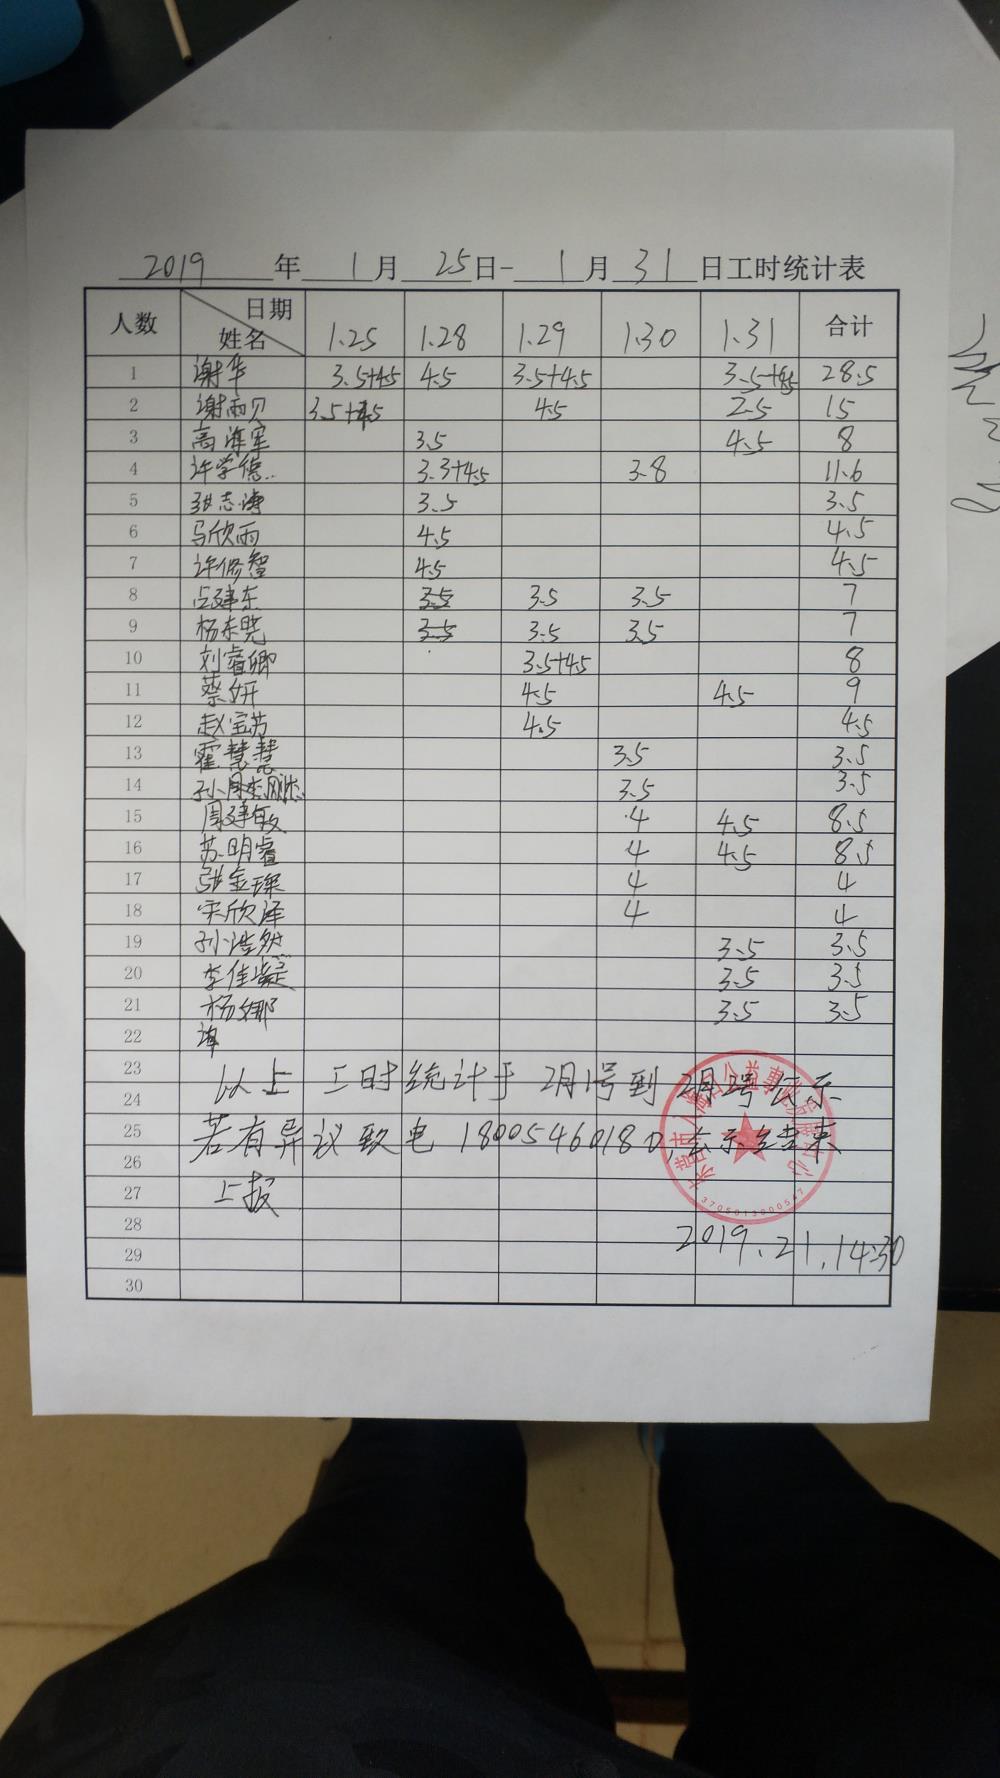 2019年1月25日-1月31日工时统计表
人数 日期 姓名 1.25 1.28 1.29 1.30 1.31 合计
1 谢华 3.5+4.5 4.5 3.5+4.5 3.5+4.5 28.5
2 谢雨贝 3.5+4.5 4.5 2.5 15
3 高海军 3.5 4.5 8
4 许学德 3.3+4.5 3.8 11.6
5 张志海 3.5 3.5
6 马欣雨 4.5 4.5
7 许修智 4.5 4.5
8 建东 3.5 3.5 3.5 7
9 杨东晓 3.5 3.5 3.5 7
10 刘睿卿 3.5+4.5 8
11 蔡妍 4.5 4.5 9
12 赵宝芳 4.5 4.5
13 霍慧慧 3.5 3.5
14 孙周李 3.5 3.5
15 周建敏 4 4.5 8.5
16 苏明睿 4 4.5 8.5
17 张金琛 4 4
18 宋欣泽 4 4
19 孙浩然 3.5 3.5
20 李佳凝 3.5 3.5
21 杨娜 3.5 3.5
22
23
以上工时统计于2月1号到2月2号公示
24
25
若有异议致电18005460180,公示结束
26
27 上报
28
2019.2.1.14:30
29
30
3705013000547